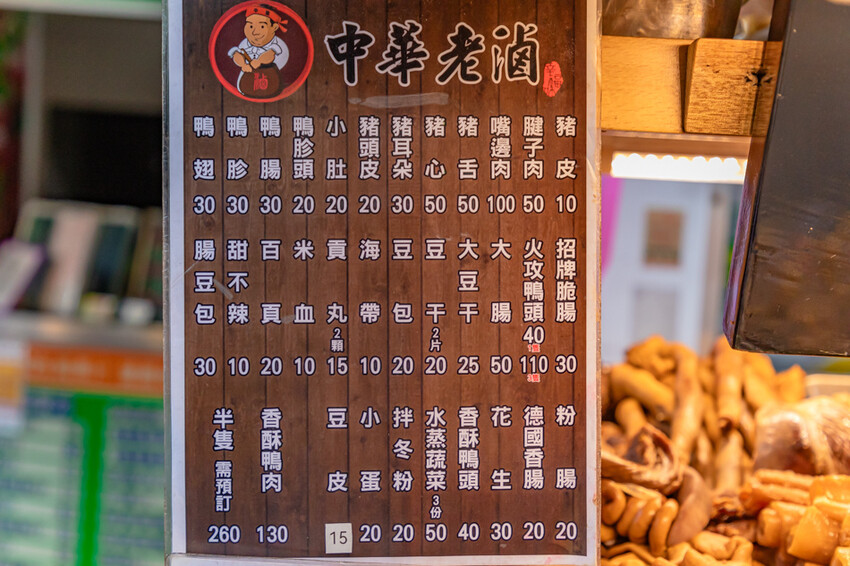 中華老滷
滷
豬皮 10
腱子肉 50
嘴邊肉 100
豬舌 50
豬心 50
豬耳朵 30
豬頭皮 20
小肚 20
鴨胗頭 20
鴨腸 30
鴨胗 30
鴨翅 30
招牌脆腸 30
火攻鴨頭 40 1個 110 3個
大腸 50
大豆干 25
豆干 2片 20
豆包 20
海帶 10
貢丸 2顆 15
米血 10
百頁 20
甜不辣 10
腸豆包 30
粉腸 20
德國香腸 20
花生 30
香酥鴨頭 40
水蒸蔬菜 3份 50
拌冬粉 20
小蛋 20
豆皮 15
香酥鴨肉 130
半隻 需預訂 260